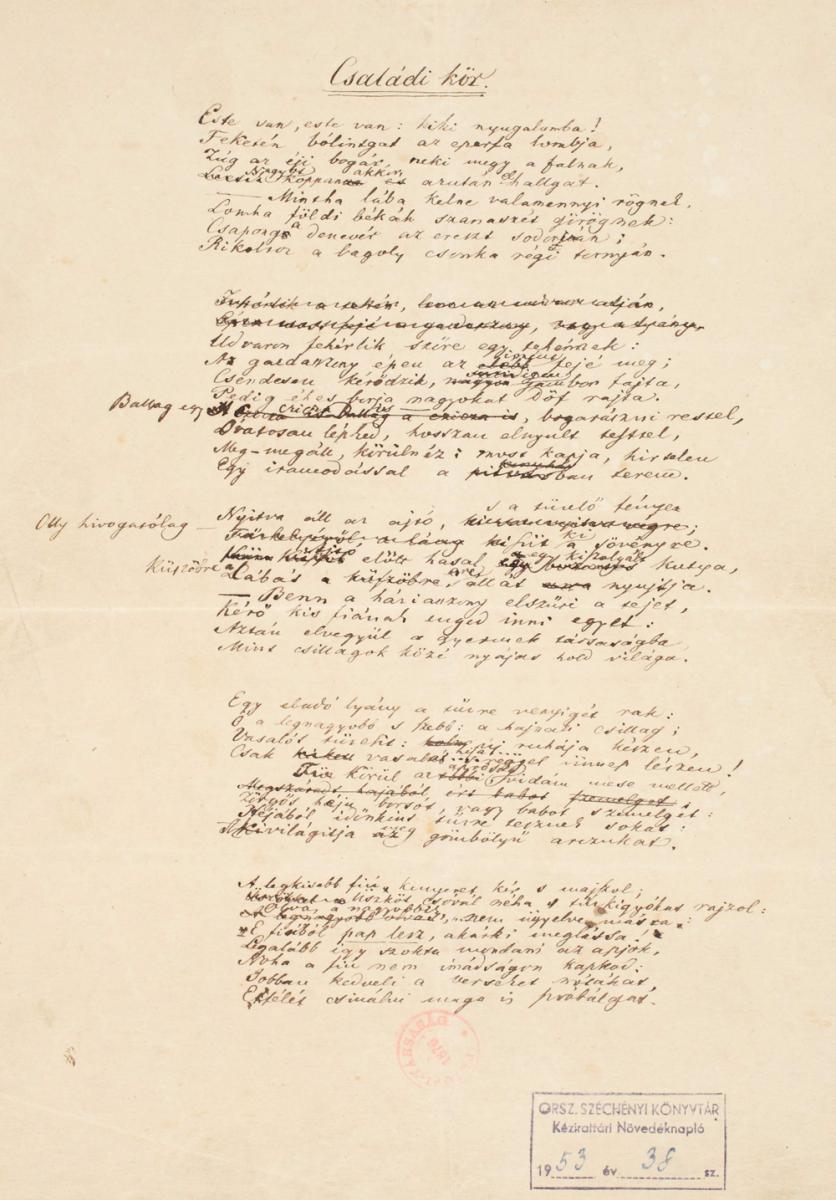 Családi kör.
Este van, este van: kiki nyugalomba!
Feketén bólintgat az eperfa lombja,
Zúg az éji bogár, neki megy a falnak,
Nagyot akkor
koppan és azután elhallgat.
— Mintha lába kelne valamennyi rögnek,
Lomha földi békák szanaszét görögnek:
Csapong a denevér az ereszt sodorván;
Rikoltoz a bagoly csonka régi tornyán.
Udvaron fehérlik szőre egy tehénnek:
Az gazdasszony épen az imént fejé meg;
Csendesen kérődzik, igen jámbor fajta,
Pedig éhes borja nagyokat döf rajta.
Ballag egy cica is, bogarászni restel,
Óvatosan lépked, hosszan elnyúlt testtel,
Meg-megáll, körülnéz: most kapja, hirtelen
Egy iramodással a pitvarban terem.
s a tüzelő fénye
Nyitva áll az ajtó,
Oly hivogatólag — kisüt ki a sövényre.
előtt hasal egy kiszolgált kutya,
Küszöbre a
Lábas a küszöbre s állát nyujtja.
— Benn a háziasszony elszűri a tejet,
Kérő kis fiának enged inni egyet:
Aztán elvegyül a gyermek társaságba,
Mint csillagok közé nyájas hold világa.
Egy eladó lyány a tűzre venyigét rak:
Ő a legnagyobb s szebb: a hajnali csillag;
Vasalót tüzesit: új ruhája készen,
Csak vasalat híjá; s reggel ünnep lészen!
Körül az apróság vidám mese mellett,
Zörgős héju borsót, vagy babot szemelget:
Héjából időnkint tűzre tesznek sokat:
Az világítja meg gömbölyű arczukat.
A legkisebb fiú kenyeret kér s majszol;
Üszköt csóvál néha s tűzkigyókat rajzol:
Olvas a nagyobbik, nem ügyelve másra:
E fiúból pap lesz, akárki meglássa!
Legalább így szokta mondani az apjok,
Noha a fiu nem imádságon kapkod:
Jobban kedveli a verseket, nótákat,
Effélét csinálni maga is próbálgat.
TÁRSASÁG
ORSZ. SZÉCHÉNYI KÖNYVTÁR
Kézirattári Növedéknapló
1953 év 38 sz.